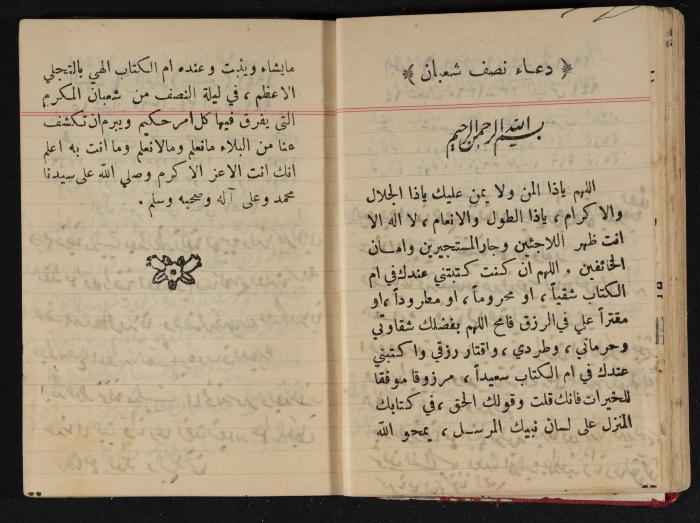 ﴿ دعاء نصف شعبان ﴾
بسم الله الرحمن الرحيم
اللهم ياذا المن ولا يمن عليك ياذا الجلال
والاكرام ، ياذا الطول والانعام ، لا اله الا
انت ظهر اللاجئين وجار المستجيرين وامان
الخائفين . اللهم ان كنت كتبتني عندك في ام
الكتاب شقياً ، او محروماً ، او مطروداً ، او
مقتراً علي في الرزق فامح اللهم بفضلك شقاوتي
وحرماني ، وطردي ، واقتار رزقي واكتبني
عندك في ام الكتاب سعيداً ، مرزوقا موفقا
للخيرات فانك قلت وقولك الحق ، في كتابك
المنزل على لسان نبيك المرسل ، يمحو الله
مايشاء ويثبت وعنده ام الكتاب الهي بالتجلي
الاعظم ، في ليلة النصف من شعبان المكرم
التي يفرق فيها كل أمر حكيم ويبرم ان تكشف
عنا من البلاء مانعلم ومالانعلم وما انت به اعلم
انك انت الاعز الاكرم وصلي الله على سيدنا
محمد وعلى آله وصحبه وسلم .